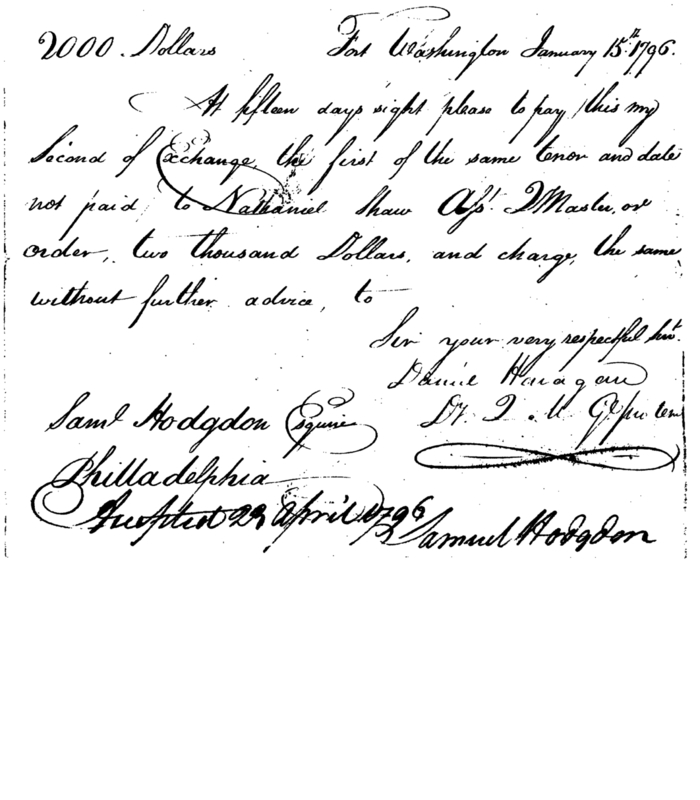 2000. Dollars Fort Washington January 15th. 1796.
At fifteen days sight please to pay this my
Second of Exchange, the first of the same tenor and date
not paid, to Nathaniel Shaw Asst. QMaster, or
order, two thousand Dollars, and charge, the same,
without further advice, to
Sir your very respectful Svt.
Daniel Haragan
D. Q. M Gl
Saml Hodgdon Esquire
Philladelphia
Accepted 23 April 1796
Samuel Hodgdon